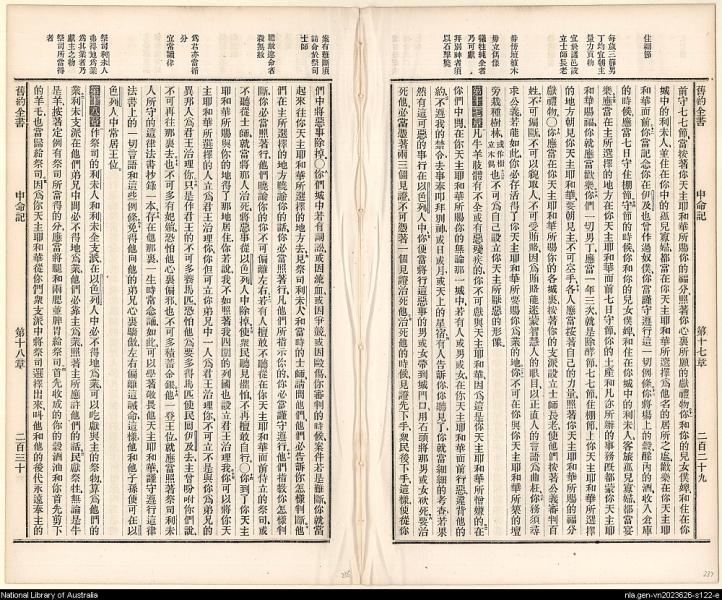 住棚節
每歲三節男丁均宜朝主量力貢物
宜於邑設立士師長老
毋傍壇植木毋立偶像
牲牷純全者乃可獻
拜別神者須以石擊斃
舊約全書
申命記
第十七章
二百二十九
前守七七節、當按著你天主耶和華所賜的福分、照著你心裏所願的獻禮物、你和你的兒女僕婢和住在你
城中的利未人、並住在你中的孤兒寡婦、都當在你天主耶和華選擇爲他名的居所之處歡樂、在你天主耶
和華面前、你當記念你在伊及也曾作過奴僕、你當謹守遵行這一切例條、你將場上的穀、醡內的酒、收入倉庫
的時候、應當七日守住棚節、守節的時候、你和你的兒女僕婢、和住在你城中的利未人、客旅孤兒寡婦、都當宴
樂、應當在主所選擇的地方、在你天主耶和華面前七日守節、
和華賜福、你就應當歡樂、你們一切男丁、應當一年三次、就是除酵節、七七節、住棚節、上你天主耶和華所選擇
的地方、朝見你天主耶和華、要朝見主、不可空手、各人應當按著自己的力量、照著你天主耶和華所賜的福分
獻禮物、○你應當在你天主耶和華所賜你的各城裏、按著你的支派、設立士師長老、使他們按著公義審判百
姓、不可偏陂、不可以貌取人、不可受賄賂、因爲賄賂能迷蒙智慧人的眼目、以正直人的言語爲曲枉、你務須尋
求公義、若能如此、你必存活、得了你天主耶和華所要賜你爲業的地、你不可在你與你天主耶和華所築的壇
旁、栽種樹林、也不可爲自己設立你天主所厭惡的形像、
第十七章 凡牛羊軀體有不全、或有惡殘疾的、你不可獻與你天主耶和華、因爲這是你天主耶和華所憎嫌的、在
你們中間、在你天主耶和華所賜你的、無論那一城中、若有人、或男或女、在你天主耶和華面前行惡、違背他的
約、不遵我的禁令、去事奉叩拜別神、或日或月或天上的星宿、有人告訴你、你聽見了、你就當細細的考查、若果
然有這可惡的事、行在以色列人中、你便當將行這惡事的男或女、帶到城門口、用石頭將那男或女打死、要治
死他、必當憑著兩三個見證、不可憑著一個見證治死他、治死他的時候、見證先下手、衆民後下手、這樣便從你
案有疑難須諮命於祭司士師
聽斷違命者殺無赦
爲君亦當循分
宜常讀律
祭司利未人弗得地爲業爲其業乃獻主之物
祭司所當得者
舊約全書
申命記
第十八章
二百三十
們中將惡事除掉、○你們城中若有詞訟、或因流血、或因爭競、或因毆傷、你審判的時候、案件若是難斷、你就當
起來、往你天主耶和華所選擇的地方去、見祭司利未人、和當時的士師、請問他們、他們必告訴你怎樣判斷、他
們在主所選擇的地方曉諭你的話、你必當照著行、凡他們所指示你的、你必當謹守遵行、他們指敎你怎樣判
斷、你必當照著行、他們曉諭你的、你不可偏離左右、若有人擅敢不聽從在你天主耶和華面前侍立的祭司、或
不聽從士師、就當將那人治死、你將惡事從以色列人中除掉、使衆民聽見懼怕、不再擅敢自行、○你到了你天主
耶和華所賜與你的地、得了那地、居住在那裏、你若說、我不如照著我四圍的列國、也設立君王治理我、你可以將你天
主耶和華所選擇的人、立爲君王、治理你、你但可立你弟兄中一人爲君王治理你、你不可立不是與你爲弟兄的
異邦人、爲君王治理你、只是作君王的、不可多養馬匹、恐怕他爲要多得馬匹、使民囘伊及去、主曾吩咐你們說、
不可再往那裏去、也不可多有妃嬪、恐怕他心裏偏邪、也不可多積蓄金銀、他一登王位、就應當照著祭司利未
人所守的這律法書、抄錄一本、存在他那裏、一生時常念誦、如此可以學著敬畏他天主耶和華、謹守遵行這律
法書上的一切言語和這些例條、免得他向他的弟兄心裏驕傲、左右偏離這誡命、這樣他和他子孫、便可在以
色列人中常居王位、
第十八章 作祭司的利未人、和利未全支派、在以色列人中必不得地爲業、可以吃獻與主的祭物、原爲他們的
業、利未支派在他們弟兄中間、必不得地爲業、他們必靠主爲業、照著主所應許他們的話、民獻祭牲、無論是牛
是羊、按著定例、有祭司所當得的分、應當將腿和兩腮並脾胃給祭司、首先收成的你的穀酒油、和你首先剪下
的羊毛、也當歸給祭司、因爲你天主耶和華、從你們衆支派中將祭司選擇出來、叫他和他的後代、永遠奉主的
National Library of Australia
nla.gen-vn2023626-s122-e